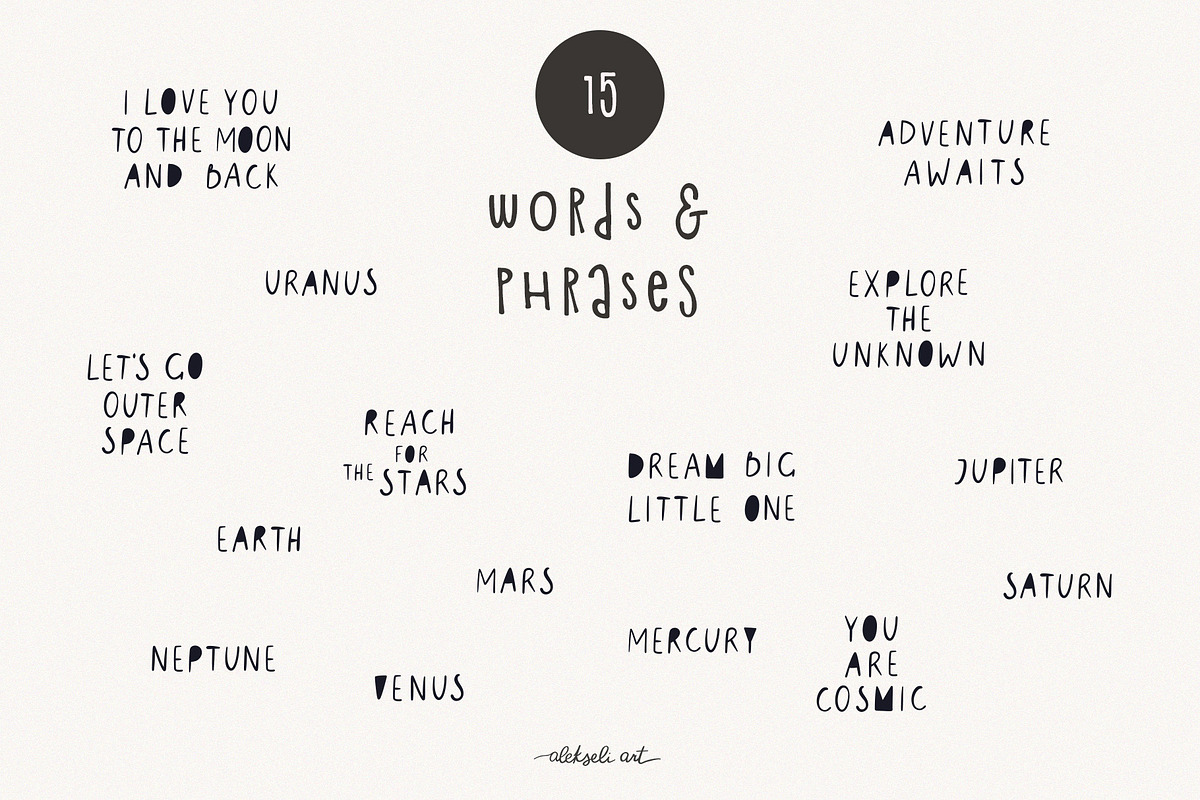 15
WORdS &
PHRaSeS
I LOVE YOU
TO THE MOON
AND BACK
ADVENTURE
AWAITS
URANUS
EXPLORE
THE
UNKNOWN
LET'S GO
OUTER
SPACE
REACH
FOR
THE STARS
DREAM BIG
LITTLE ONE
JUPITER
EARTH
MARS
SATURN
MERCURY
YOU
ARE
COSMIC
NEPTUNE
VENUS
alekseli art